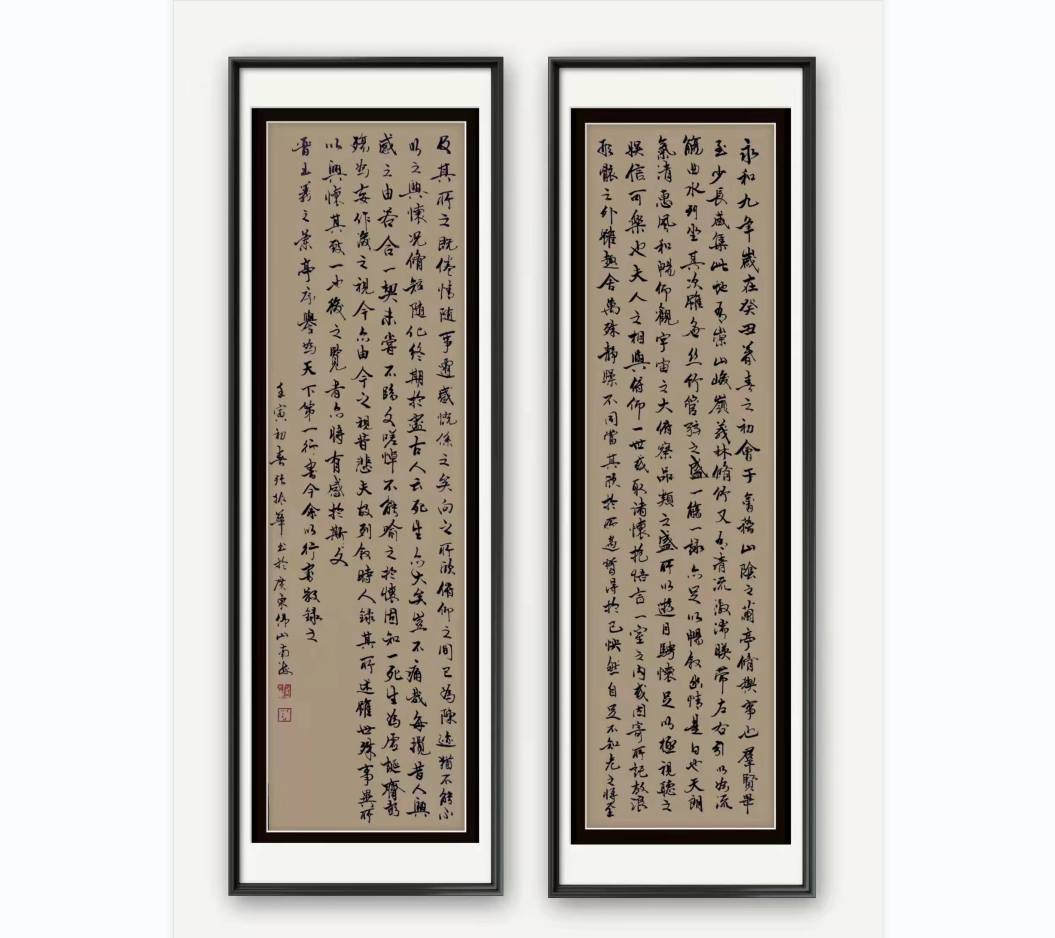 永和九年歲在癸丑暮春之初會于會稽山陰之蘭亭脩禊事也羣賢畢
至少長咸集此地有崇山峻嶺茂林脩竹又有清流激湍暎帶左右引以為流
觴曲水列坐其次雖無絲竹管弦之盛一觴一詠亦足以暢敘幽情是日也天朗
氣清惠風和暢仰觀宇宙之大俯察品類之盛所以遊目騁懷足以極視聽之
娛信可樂也夫人之相與俯仰一世或取諸懷抱悟言一室之內或因寄所託放浪
形骸之外雖趣舍萬殊靜躁不同當其欣於所遇暫得於己怏然自足不知老之將至
及其所之既倦情随事遷感慨係之矣向之所欣俯仰之間已為陳迹猶不能不
以之興懷況脩短随化終期於盡古人云死生亦大矣豈不痛哉每攬昔人興
感之由若合一契未嘗不臨文嗟悼不能喻之於懷固知一死生為虛誕齊彭
殤為妄作後之視今亦由今之視昔悲夫故列敘時人錄其所述雖世殊事異所
以興懷其致一也後之覽者亦將有感於斯文
晉王羲之蘭亭序譽為天下第一行書今余以行書敬錄之
壬寅初春張振華書於廣東佛山南海